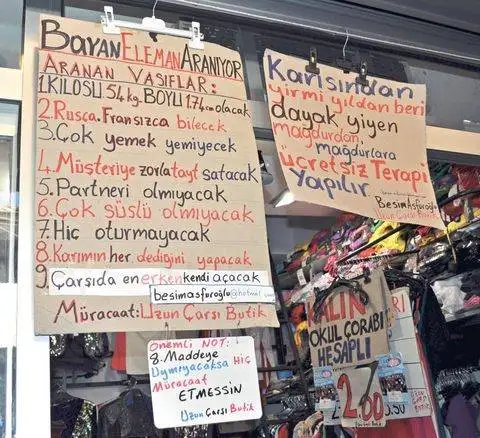 BAYAN ELEMAN ARANIYOR
ARANAN VASIFLAR:
1.KİLOSU 54 kg. BOYU 1.74 cm olacak
2.Rusca. Fransızca bilecek
3.Çok yemek yemiyecek
4.Müşteriye zorla tayt satacak
5.Partneri olmıyacak
6.Çok süslü olmıyacak
7.Hiç oturmayacak
8.Karımın her dediğini yapacak
9.Çarşıda en erken kendi açacak
besimasfuroğlu@hotmail.com
Müracaat: Uzun Çarşı Butik
ÖNEMLİ NOT:
8. Maddeye
Uymıyacaksa Hiç
Müracaat
ETMESSİN
Uzun Çarşı Butik
Karısından
yirmi yıldan beri
dayak yiyen
mağdurdan,
mağdurlara
ücretsiz Terapi
YAPILIR
Besim Asfuroğlu
Uzun Çarşı Butik
KALIN
OKUL ÇORABI
HESAPLI